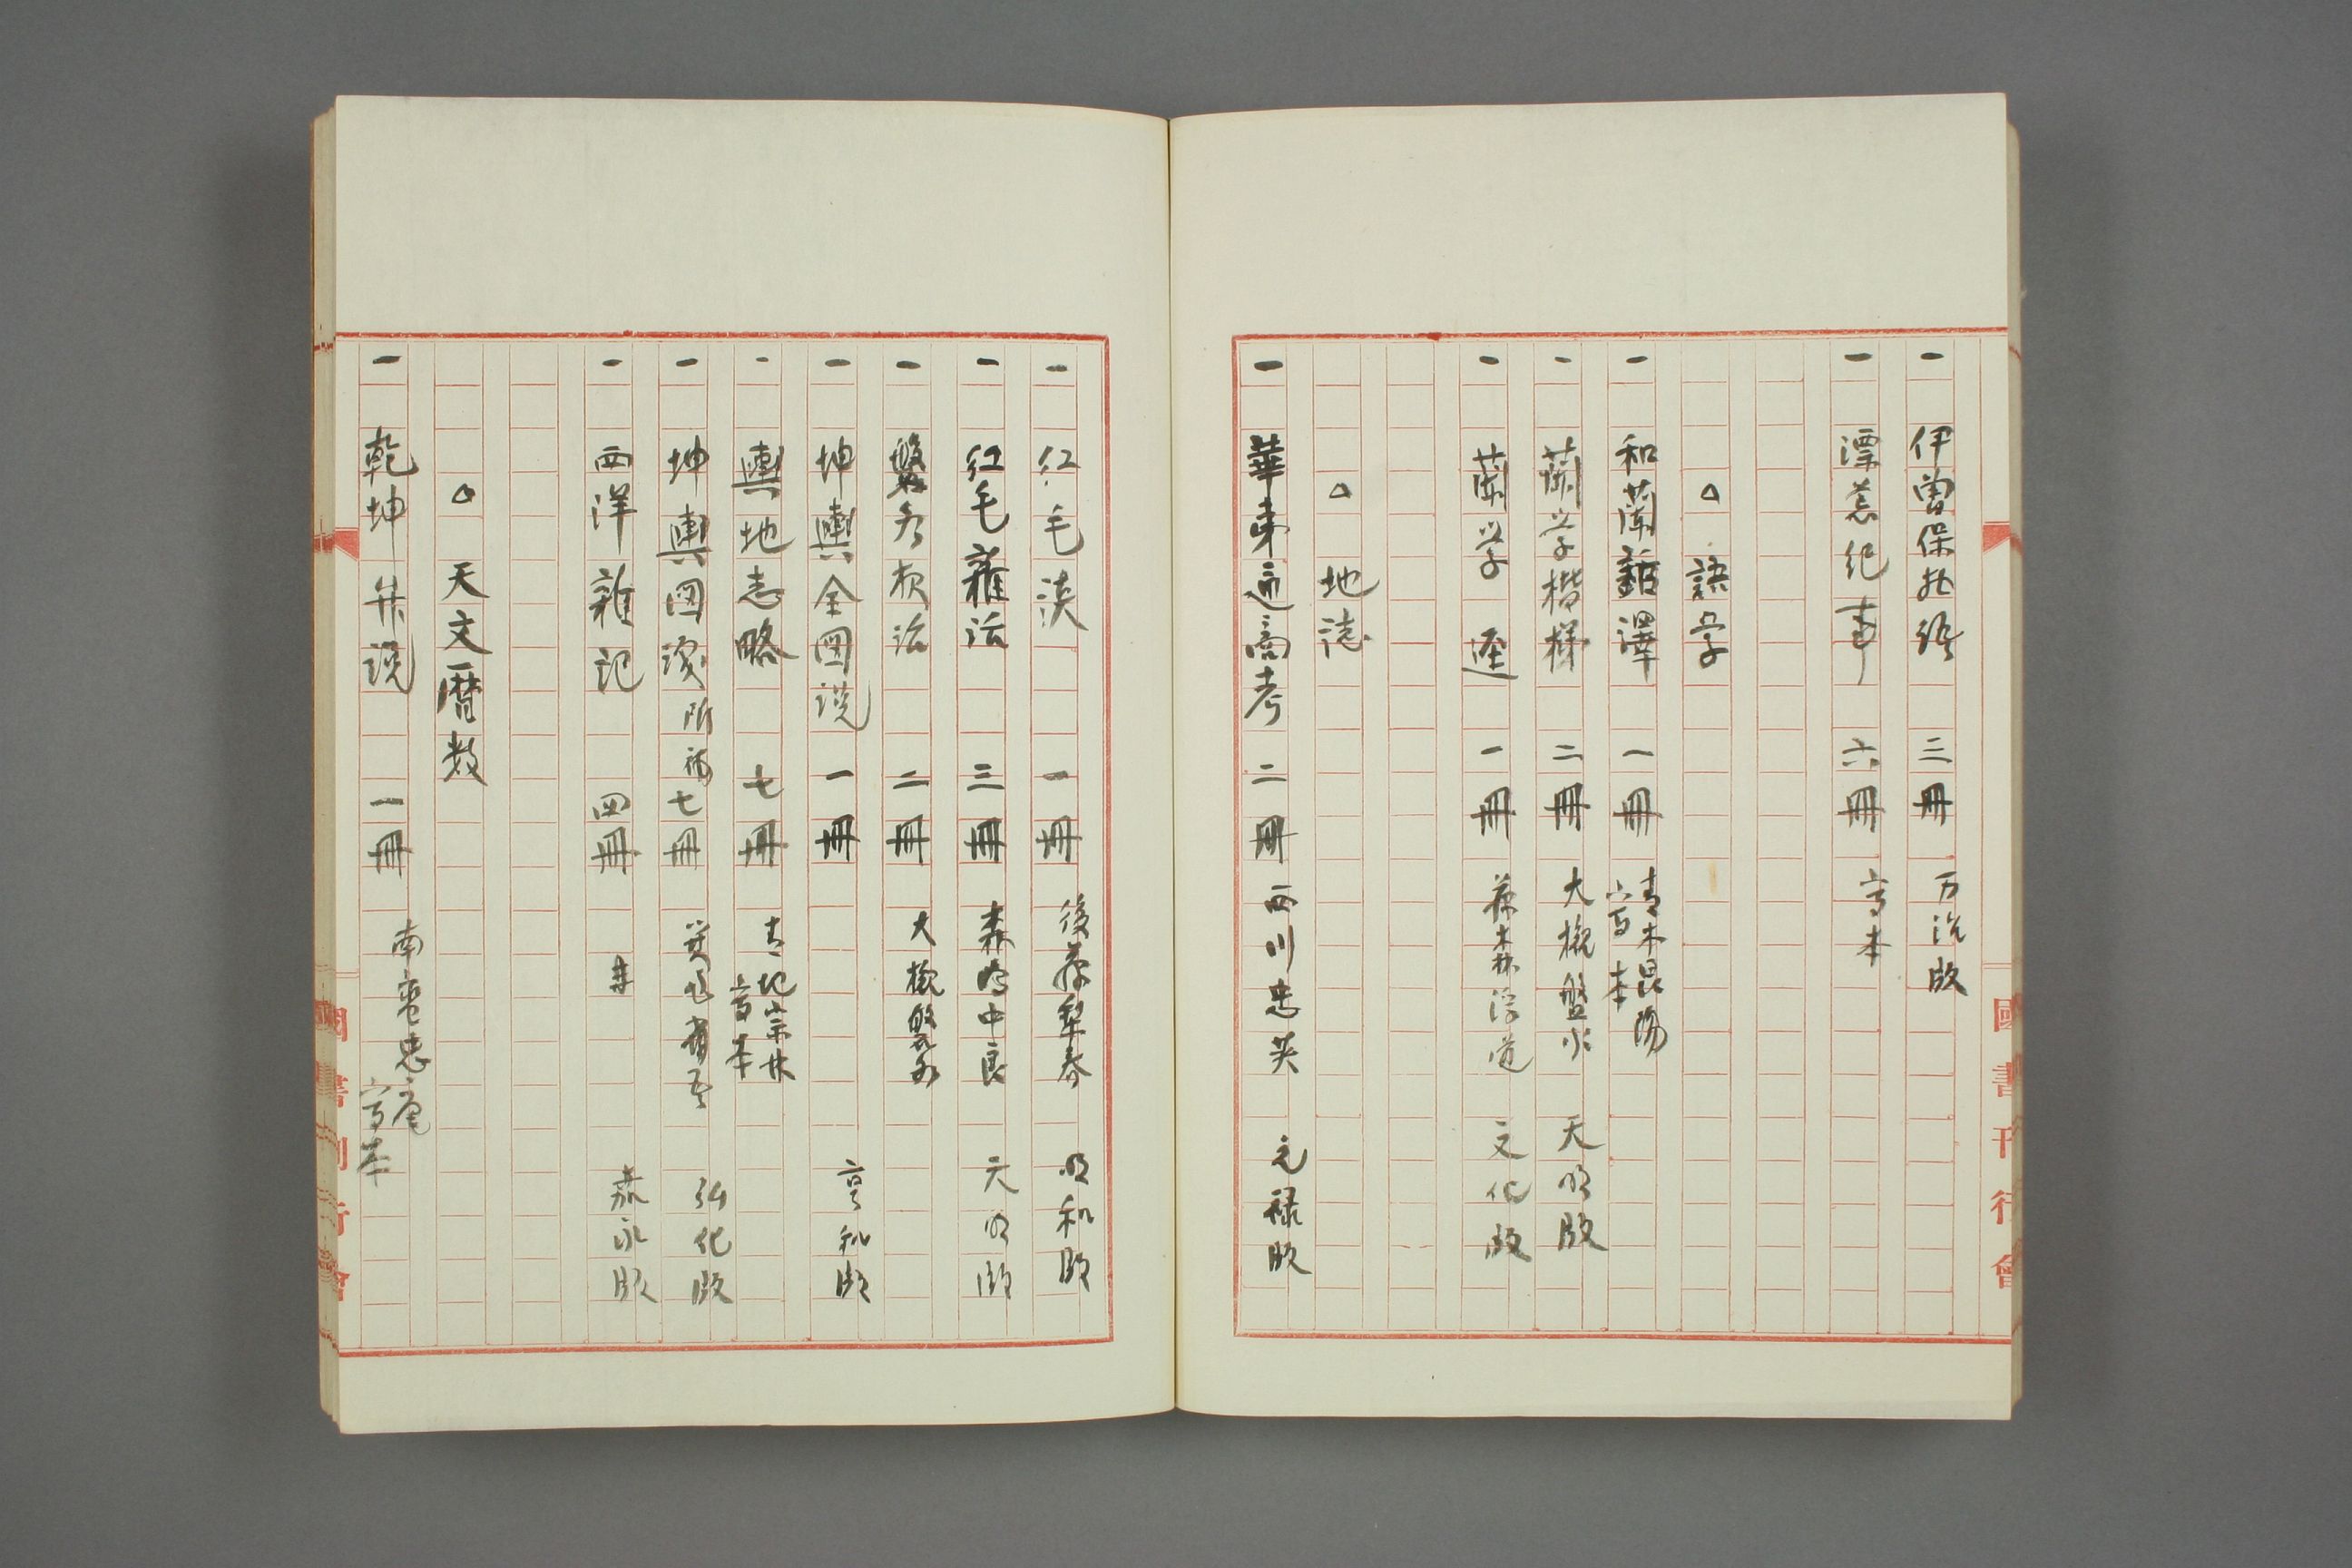 一 伊曽保物語 三冊 万治版
一 漂荒紀事 六冊 写本
△ 語学
一 和蘭話譯 一冊 青木昆陽 写本
一 蘭学楷梯 二冊 大槻盤水 天明版
一 蘭学逕 一冊 藤林淳道 文化版
△ 地誌
一 華夷通商考 二冊 西川忠英 元禄版
一 紅毛談 一冊 後藤梨春 明和版
一 紅毛雑話 三冊 森嶋中良 天明版
一 盤水夜話 二冊 大槻盤水
一 坤輿全図説 一冊 享和版
一 輿地志略 七冊 青地宗林 写本
一 坤輿図識 附補 七冊 箕作省吾 弘化版
一 西洋雑記 四冊 嘉永版
△ 天文暦数
一 乾坤弁説 一冊 南蛮忠庵 写本
國書刊行會